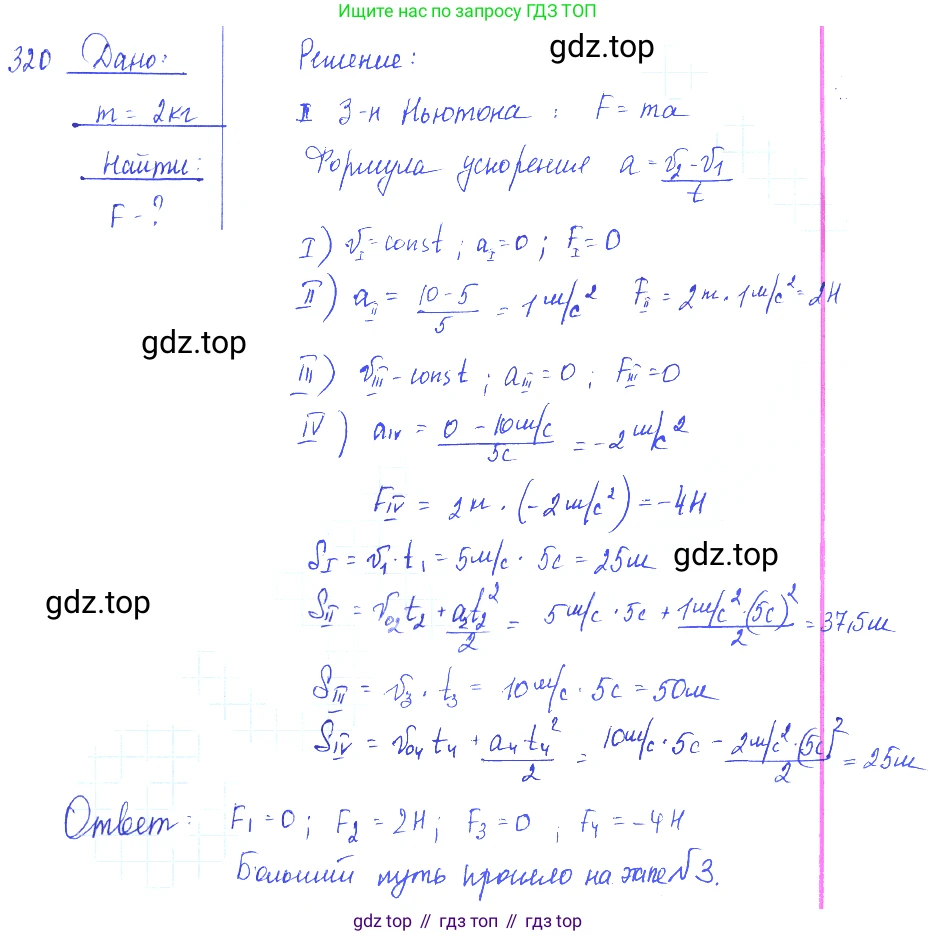 Ищите нас по запросу ГДЗ ТОП
320 Дано: Решение: gdz.top
m = 2кг I З-н Ньютона : F = ma
Найти: Формула ускорения a = (v₂-v₁)/t
F - ?
I) v_I = const ; a_I = 0 ; F_I = 0
II) a_II = (10-5)/5 = 1 м/с² F_II = 2 кг · 1 м/с² = 2Н
gdz.top
III) v_III - const ; a_III = 0 ; F_III = 0
IV) a_IV = (0 - 10м/с)/5с = -2 м/с²
F_IV = 2 кг · (-2 м/с²) = -4Н
S_I = v₁ · t₁ = 5м/с · 5с = 25м gdz.top
gdz.top
S_II = v₀₂t₂ + a₂t₂²/2 = 5м/с · 5с + 1м/с² · (5с)²/2 = 37,5м
S_III = v₃ · t₃ = 10м/с · 5с = 50м
S_IV = v₀₄t₄ + a₄t₄²/2 = 10м/с · 5с - 2м/с² · (5с)²/2 = 25м
Ответ: F₁ = 0 ; F₂ = 2Н ; F₃ = 0 ; F₄ = -4Н
Больший путь прошло на этапе №3.
gdz.top // гдз топ // гдз top